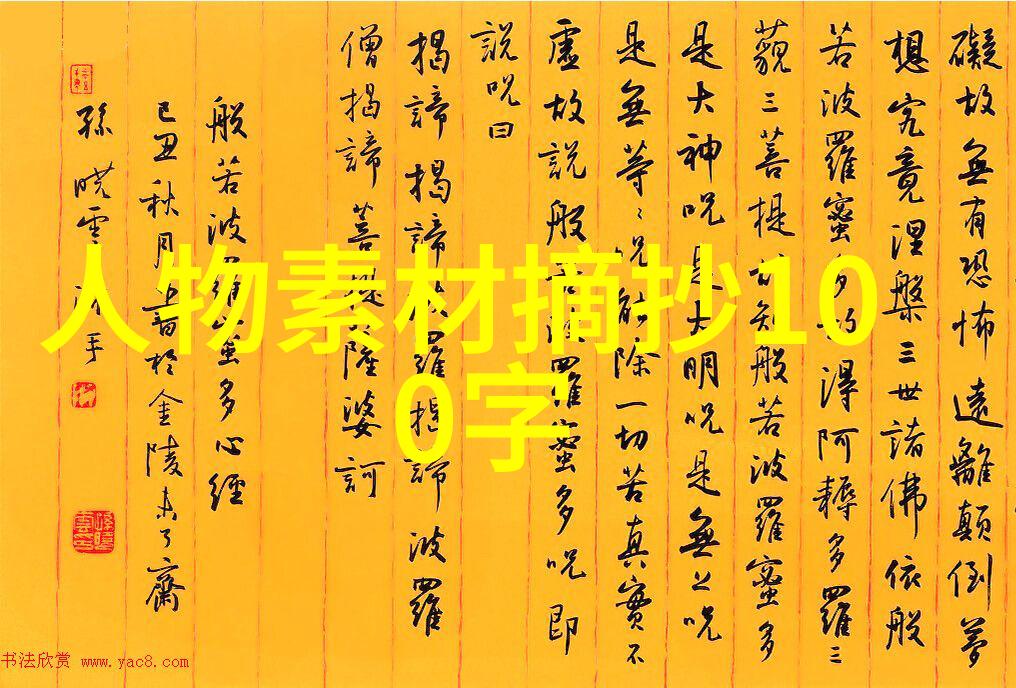 人物素材摘抄10
0字
礙故無有恐怖遠離顛倒夢
想究竟涅槃三世諸佛依般
若波羅蜜多故得阿耨多羅三
藐三菩提故知般若波羅蜜多
是大神呪是大明呪是無上呪
是無等〻呪能除一切苦真實不
虛故說般若波羅蜜多呪即
說呪曰
揭諦揭諦波羅揭諦波羅
僧揭諦菩提薩婆訶
般若波羅蜜多心經
己丑秋月於金陵未了齋
孫曉雲沐手
书法欣赏 www.yac8.com